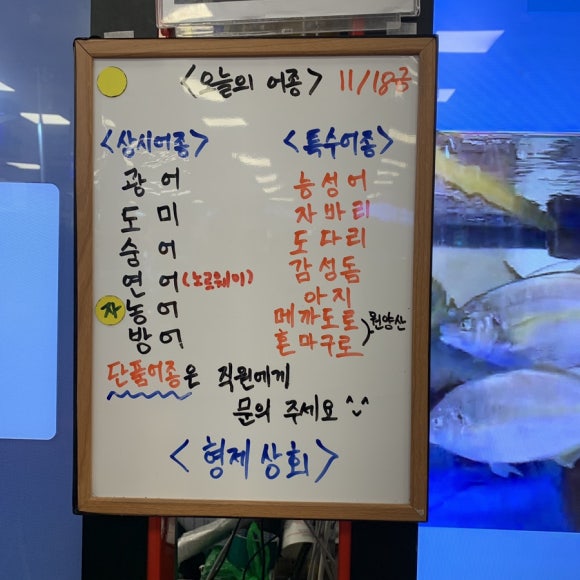 <오늘의 어종> 11/18금
<상시어종>
광어
도미
숭어
연어 (노르웨이)
자 농어
방어
<특수어종>
능성어
자바리
도다리
감성돔
아지
메까도로
혼마구로
원양산
단품어종은 직원에게
문의 주세요 ^‿^
<형제상회>